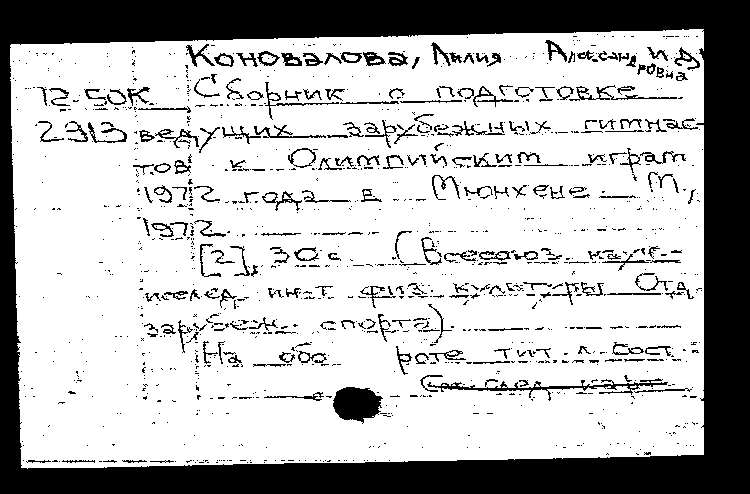 Коновалова, Лилия Александровна и др
12-50К Сборник о подготовке
2913 ведущих зарубежных гимнас-
тов к Олимпийским играм
1972 года в Мюнхене. М.,
1972.
[2], 30 с. (Всесоюз. науч.-
исслед. ин-т физ. культуры Отд.
зарубеж. спорта).
На обороте тит. л. сост.:
См. след. карт